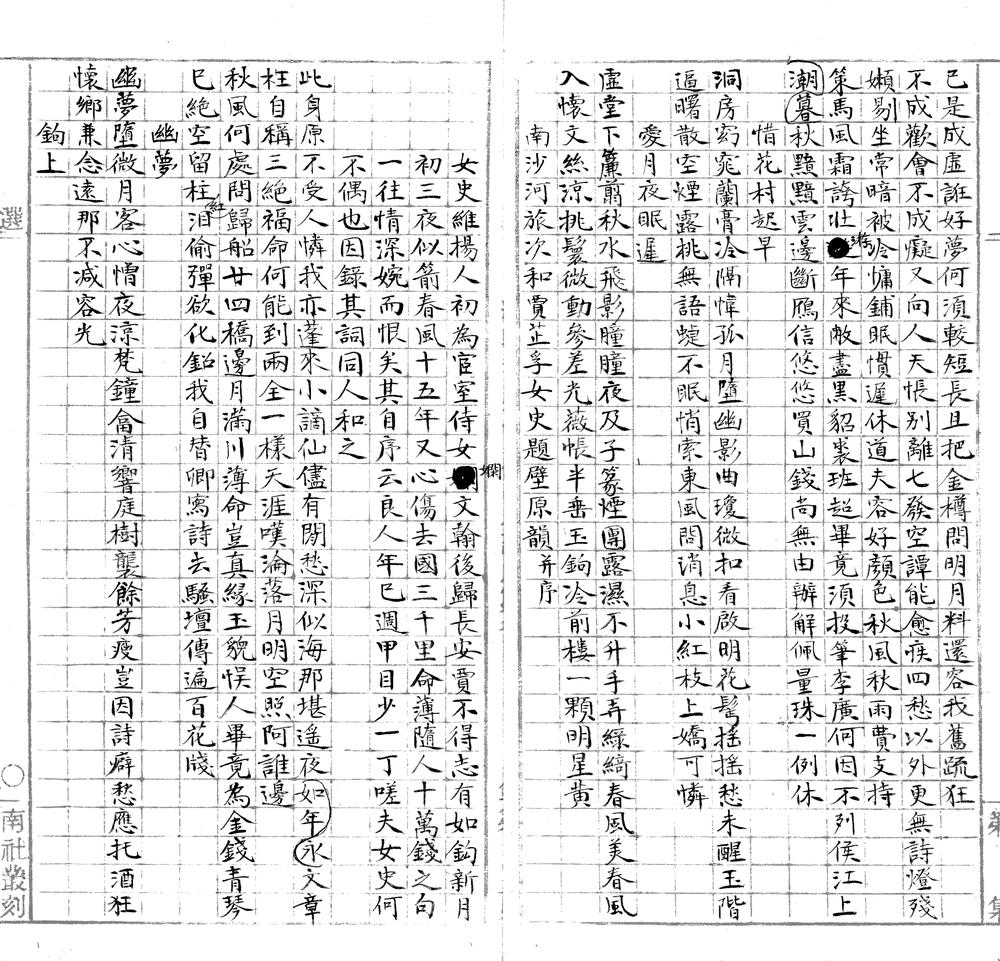 已是成虛誑好夢何須較短長且把金樽問明月料還容我舊疏狂
不成歡會不成癡又向人天悵别離七發空譚能愈疾四愁以外更無詩燈殘
嬾剔坐常暗被冷慵鋪眠慣遲休道夫容好顔色秋風秋雨費支持
策馬風霜誇壯年來敝盡黑貂裘班超畢竟須投筆李廣何因不列侯江上
潮暮秋黯黯雲邊斷鴈信悠悠買山錢尚無由辦解佩量珠一例休
惜花村起早
洞房窈窕蘭膏冷隔幃孤月墮幽影曲瓊微扣看啟明花髩搖搖愁未醒玉階
逼曙散空煙露挑無語蜨不眠悄索東風問消息小紅枝上嬌可憐
愛月夜眠遲
虛堂下簾翦秋水飛影瞳瞳夜及子篆煙團露濕不升手弄綠綺春風美春風
入懷文絲涼挑鬟微動參差光薇帳半垂玉鉤冷前樓一顆明星黄
南沙河旅次和賈芷孚女史題壁原韻并序
女史維揚人初為宦室侍女嫻文翰後歸長安賈不得志有如鈎新月
初三夜似箭春風十五年又心傷去國三千里命薄隨人十萬錢之句
一往情深婉而恨矣其自序云良人年已週甲目少一丁嗟夫女史何
不偶也因録其詞同人和之
此身原不受人憐我亦蓬來小謫仙儘有閒愁深似海那堪遥夜如年永文章
枉自稱三絕福命何能到兩全一樣天涯嘆淪落月明空照阿誰邊
秋風何處問歸船廿四橋邊月滿川薄命豈真緣玉貌悞人畢竟為金錢青琴
已絕空留柱紅淚偷彈欲化鉛我自替卿寫詩去騷壇傳遍百花牋
幽夢
幽夢墮微月客心憎夜涼梵鐘龠清響庭樹襲餘芳瘦豈因詩癖愁應托酒狂
懷鄉兼念遠那不减容光
鉤上
選
南社叢刻
第
集